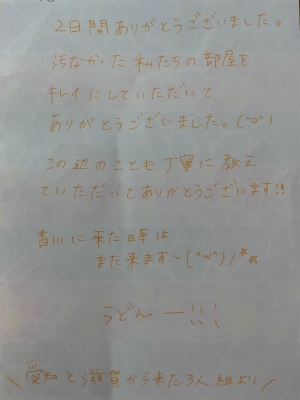 2日間ありがとうございました。
汚なかった私たちの部屋を
キレイにしていただいて
ありがとうございました。(^o^)
この辺のことも丁寧に教え
ていただいてありがとうございます!!
香川に来た時は
また来ますヽ(^w^)ノ
うどんー!!!
\愛知と滋賀から来た3人組より/